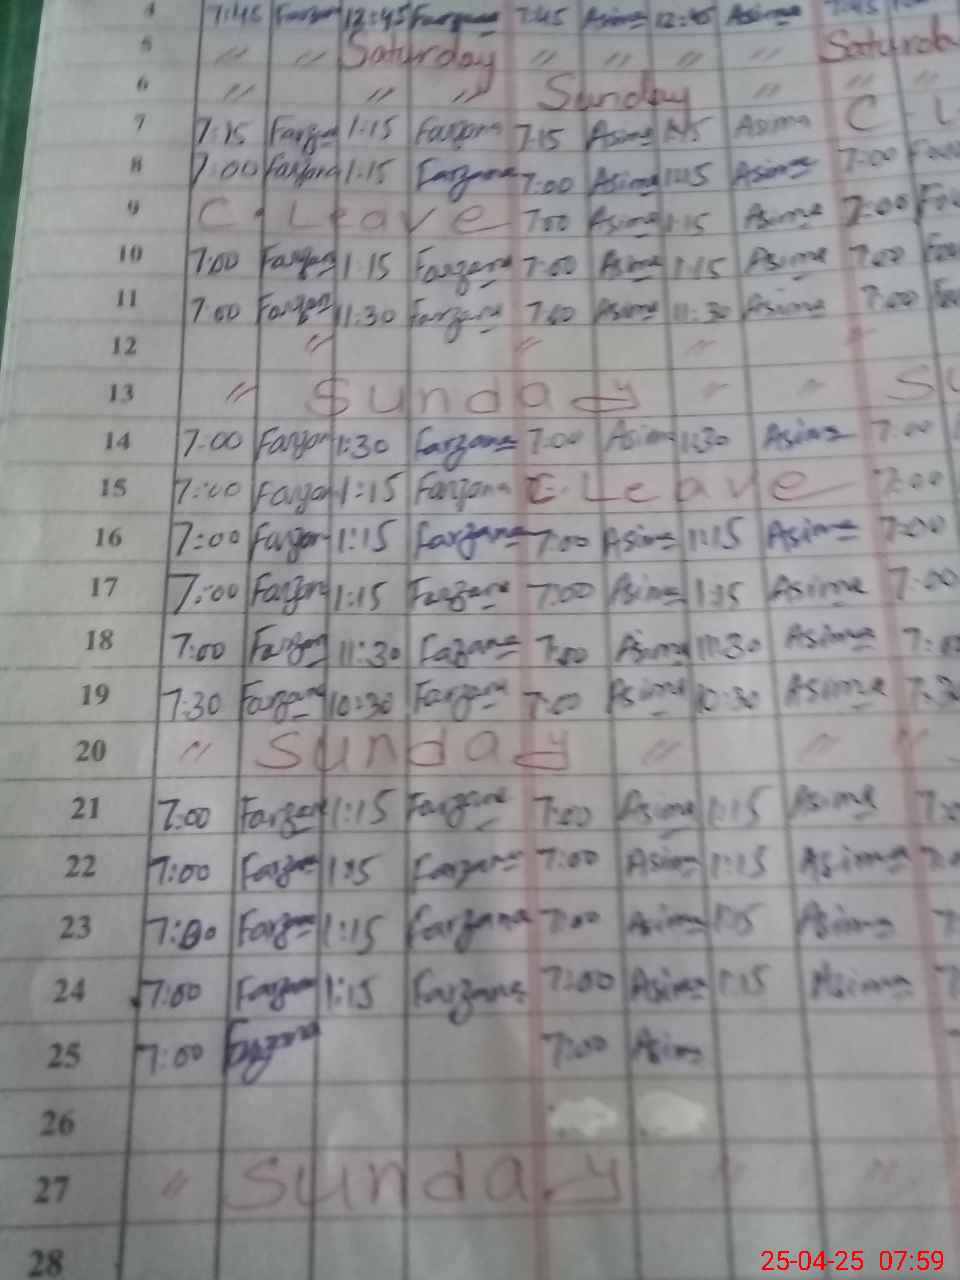 4 7:45 Farzana 12:45 Farzana 7:45 Asima 12:45 Asima 7:45
5 " " Saturday " " " " Saturday
6 " " " Sunday " " "
7 7:15 Farzana 1:15 Farzana 7:15 Asima 1:15 Asima C L
8 7:00 Farzana 1:15 Farzana 7:00 Asima 1:15 Asima 7:00
9 C. Leave 7:00 Asima 1:15 Asima 7:00
10 7:00 Farzana 1:15 Farzana 7:00 Asima 1:15 Asima 7:00
11 7:00 Farzana 11:30 Farzana 7:00 Asima 11:30 Asima 7:00
12 " " " "
13 " Sunday " " Su
14 7:00 Farzan 1:30 Farzana 7:00 Asima 1:30 Asima 7:00
15 7:00 Farzan 1:15 Farzana C. Leave 7:00
16 7:00 Farzan 1:15 Farzana 7:00 Asima 1:15 Asima 7:00
17 7:00 Farzan 1:15 Farzana 7:00 Asima 1:15 Asima 7:00
18 7:00 Farzan 11:30 Fazana 7:00 Asima 11:30 Asima
19 7:30 Farzana 10:30 Farzana 7:00 Asima 10:30 Asima 7:30
20 " Sunday " " "
21 7:00 Farzan 1:15 Farzana 7:00 Asima 1:15 Asima
22 7:00 Farzan 1:15 Farzana 7:00 Asima 1:15 Asima
23 7:00 Farzan 1:15 Farzana 7:00 Asima 1:15 Asima
24 7:00 Farzan 1:15 Farzana 7:00 Asima 1:15 Asima
25 7:00 Farzana 7:00 Asima
26
27 " Sunday " "
28
25-04-25 07:59